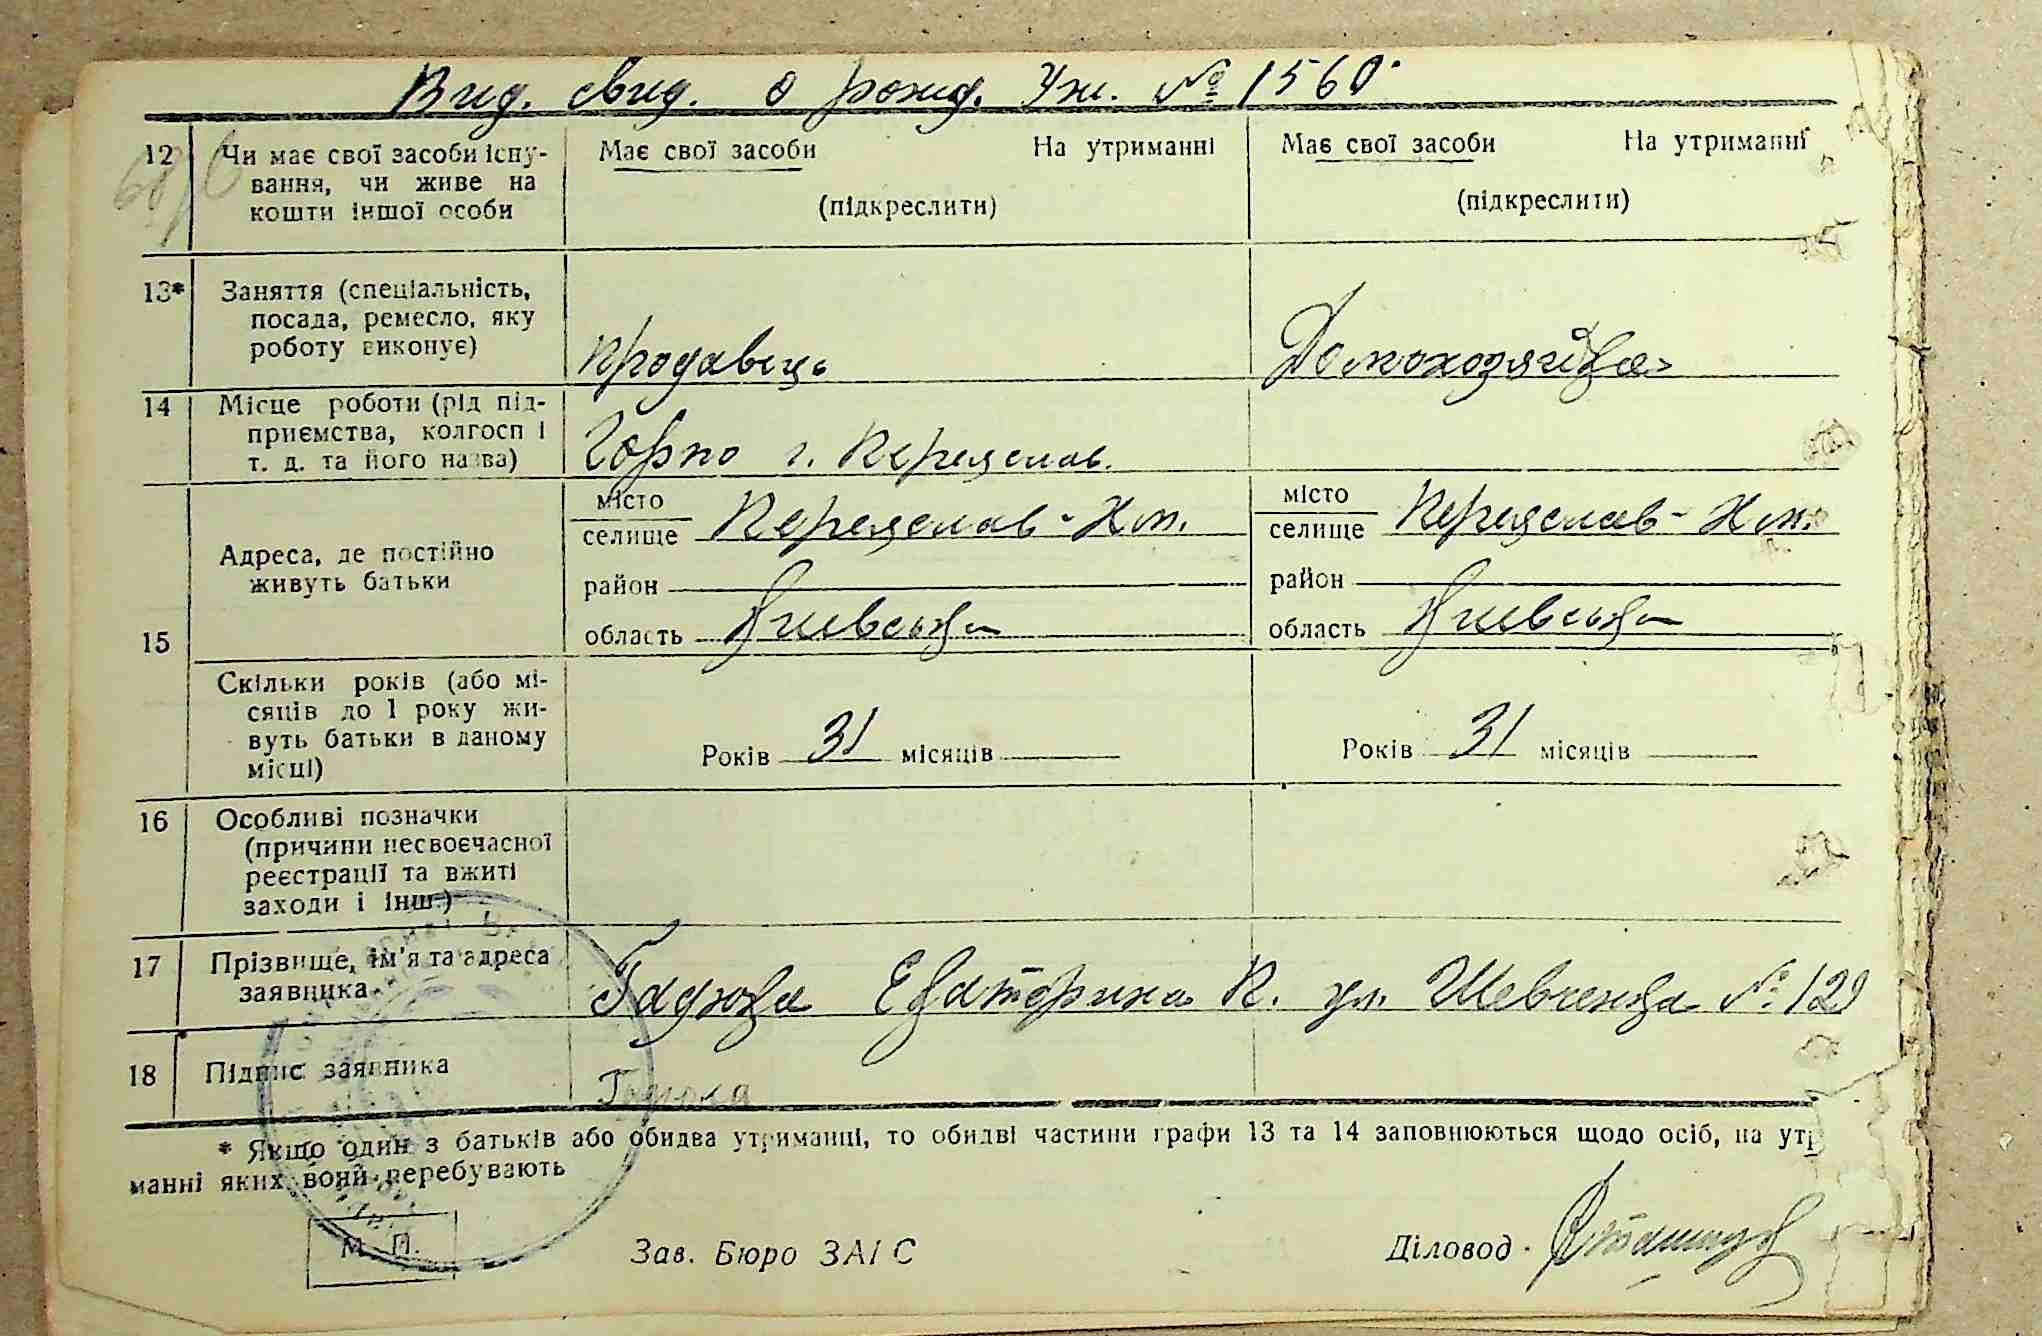 Вид. свид. о рожд. Уж. № 1560
12 Чи має свої засоби існу-
вання, чи живе на
кошти іншої особи
Має свої засоби На утриманні
(підкреслити)
Має свої засоби На утриманні
(підкреслити)
13* Заняття (спеціальність,
посада, ремесло, яку
роботу виконує)
продавець
Домохозяйка
14 Місце роботи (рід під-
приємства, колгосп і
т. д. та його назва)
Горпо г. Переяслав.
15
Адреса, де постійно
живуть батьки
місто
селище Переяслав-Хм.
район
область Киевська
місто
селище Переяслав-Хм.
район
область Киевська
Скільки років (або мі-
сяців до 1 року жи-
вуть батьки в даному
місці)
Років 31 місяців
Років 31 місяців
16 Особливі позначки
(причини несвоєчасної
реєстрації та вжиті
заходи і інш.)
17 Прізвище, ім'я та адреса
заявника
Екатерина К. ул. Шевченка № 129
18 Підпис заявника
* Якщо один з батьків або обидва утриманці, то обидві частини графи 13 та 14 заповнюються щодо осіб, на утри
манні яких вони перебувають
М. П.
Зав. Бюро ЗАГС
Діловод